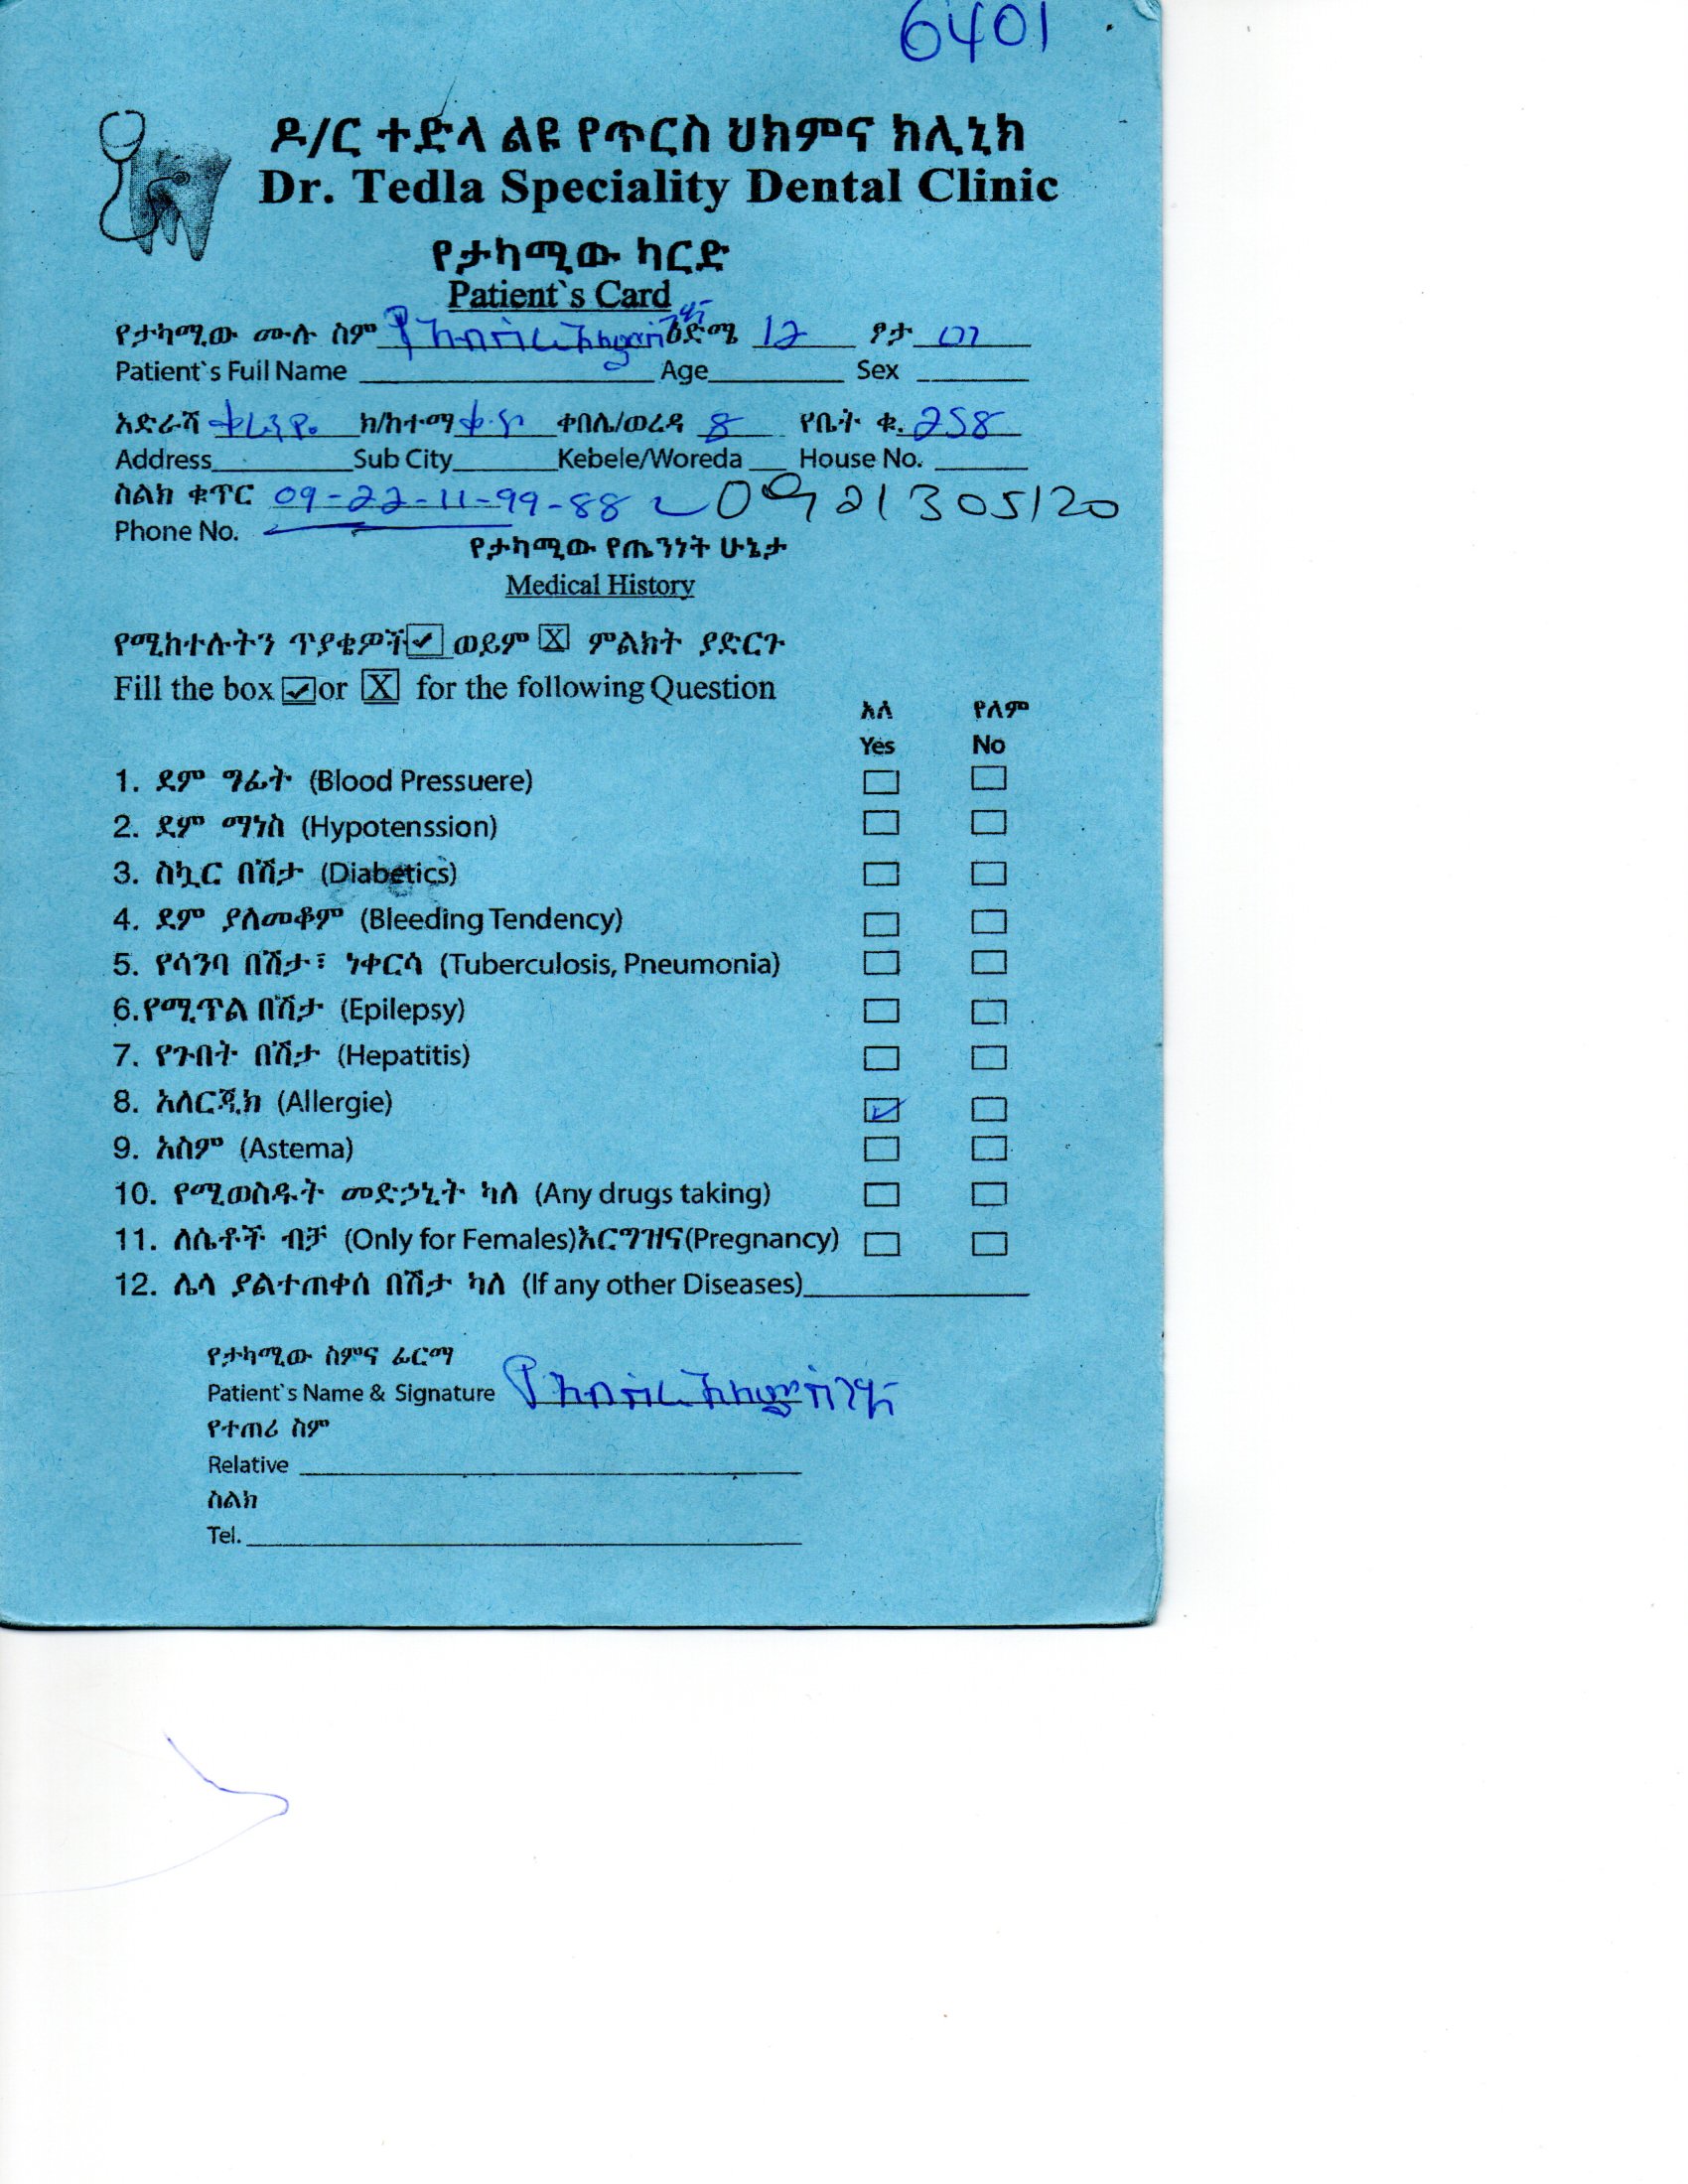 6401
ዶ/ር ተድላ ልዩ የጥርስ ህክምና ክሊኒክ
Dr. Tedla Speciality Dental Clinic
የታካሚው ካርድ
Patient`s Card
የታካሚው ሙሉ ስም ዕድሜ 12 ፆታ
Patient`s Fuil Name Age Sex
አድራሻ ክ/ከተማ ቀበሌ/ወረዳ 8 የቤት ቁ. 258
Address Sub City Kebele/Woreda House No.
ስልክ ቁጥር 09-22-11-99-88 0921305120
Phone No.
የታካሚው የጤንነት ሁኔታ
Medical History
የሚከተሉትን ጥያቄዎች ✓ ወይም X ምልክት ያድርጉ
Fill the box ✓ or X for the following Question
አለ የለም
Yes No
1. ደም ግፊት (Blood Pressuere)
2. ደም ማነስ (Hypotenssion)
3. ስኳር በሽታ (Diabetics)
4. ደም ያለመቆም (Bleeding Tendency)
5. የሳንባ በሽታ፣ ነቀርሳ (Tuberculosis, Pneumonia)
6.የሚጥል በሽታ (Epilepsy)
7. የጉበት በሽታ (Hepatitis)
8. አለርጂክ (Allergie) ✓
9. አስም (Astema)
10. የሚወስዱት መድኃኒት ካለ (Any drugs taking)
11. ለሴቶች ብቻ (Only for Females)እርግዝና(Pregnancy)
12. ሌላ ያልተጠቀሰ በሽታ ካለ (If any other Diseases)
የታካሚው ስምና ፊርማ
Patient`s Name & Signature
የተጠሪ ስም
Relative
ስልክ
Tel.